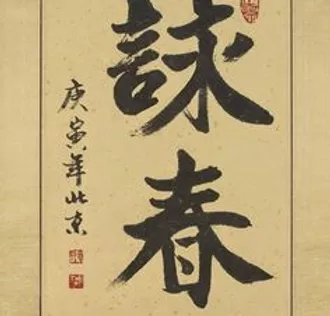 詠春
庚寅年北京